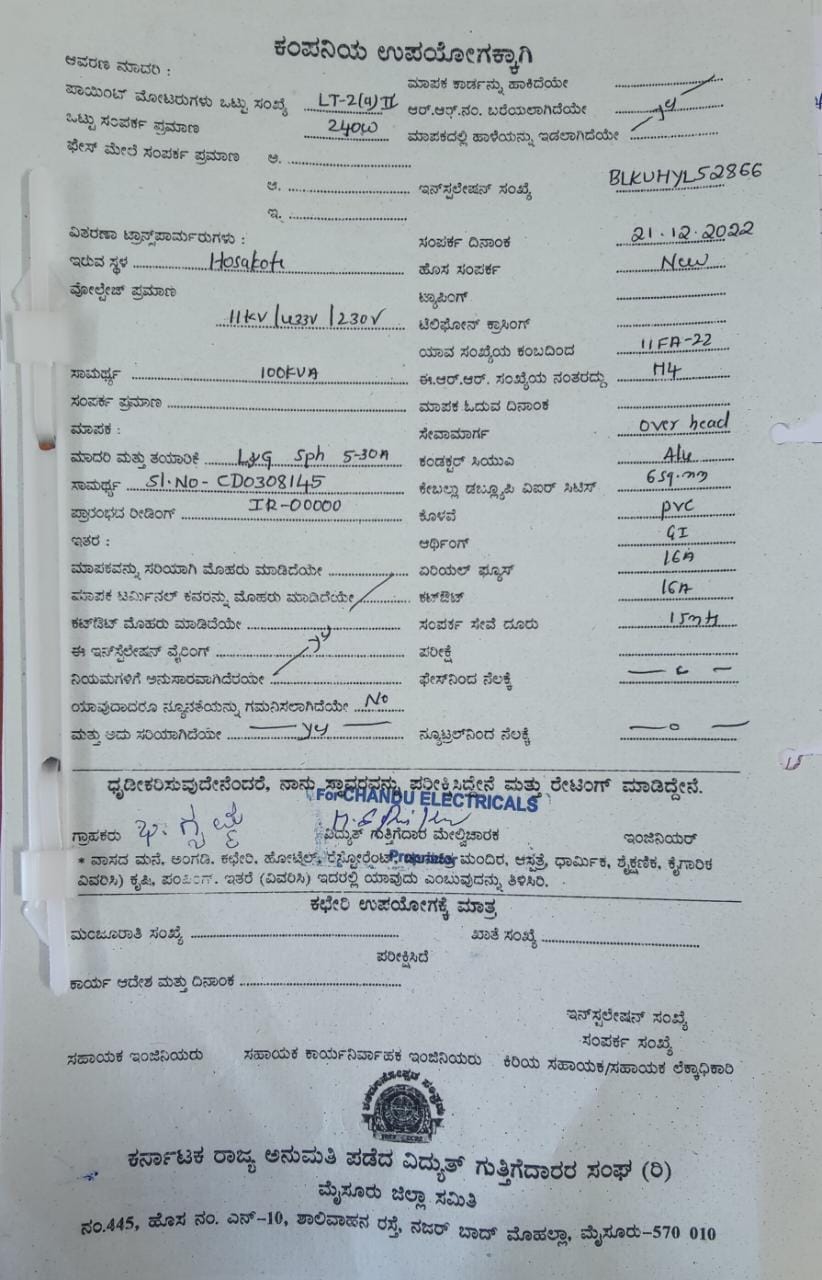 ಕಂಪನಿಯ ಉಪಯೋಗಕ್ಕಾಗಿ
ಆವರಣ ಮಾದರಿ :
ಮಾಪಕ ಕಾರ್ಡನ್ನು ಹಾಕಿದೆಯೇ
ಪಾಯಿಂಟ್ ಮೋಟರುಗಳು ಒಟ್ಟು ಸಂಖ್ಯೆ LT-2(a) II ಆರ್.ಆರ್.ನಂ. ಬರೆಯಲಾಗಿದೆಯೇ
ಒಟ್ಟು ಸಂಪರ್ಕ ಪ್ರಮಾಣ 240W ಮಾಪಕದಲ್ಲಿ ಹಾಳೆಯನ್ನು ಇಡಲಾಗಿದೆಯೇ
ಫೇಸ್ ಮೇಲೆ ಸಂಪರ್ಕ ಪ್ರಮಾಣ ಅ.
ಆ. ಇನ್‌ಸ್ಟಲೇಷನ್ ಸಂಖ್ಯೆ BLKUHYL52866
ಇ.
ವಿತರಣಾ ಟ್ರಾನ್ಸ್‌ಪಾರ್ಮರುಗಳು : ಸಂಪರ್ಕ ದಿನಾಂಕ 21.12.2022
ಇರುವ ಸ್ಥಳ Hosakote ಹೊಸ ಸಂಪರ್ಕ New
ವೋಲ್ಟೇಜ್ ಪ್ರಮಾಣ ಟ್ಯಾಪಿಂಗ್
11KV/433V/230V ಟೆಲಿಫೋನ್ ಕ್ರಾಸಿಂಗ್
ಯಾವ ಸಂಖ್ಯೆಯ ಕಂಬದಿಂದ 11FA-22
ಸಾಮರ್ಥ್ಯ 100KVA ಈ.ಆರ್.ಆರ್. ಸಂಖ್ಯೆಯ ನಂತರದ್ದು H4
ಸಂಪರ್ಕ ಪ್ರಮಾಣ ಮಾಪಕ ಓದುವ ದಿನಾಂಕ
ಮಾಪಕ : ಸೇವಾಮಾರ್ಗ over head
ಮಾದರಿ ಮತ್ತು ತಯಾರಿಕೆ L&G Sph 5-30A ಕಂಡಕ್ಟರ್ ಸಿಯುಎ Alu
ಸಾಮರ್ಥ್ಯ Sl.No-CD0308145 ಕೇಬಲ್ಲು ಡಬ್ಲ್ಯೂಪಿ ವಿಐರ್ ಸಿಟಿಸ್ 6sq.mm
ಪ್ರಾರಂಭದ ರೀಡಿಂಗ್ IR-00000 ಕೊಳವೆ pvc
ಇತರ : ಆರ್ಥಿಂಗ್ GI
ಮಾಪಕವನ್ನು ಸರಿಯಾಗಿ ಮೊಹರು ಮಾಡಿದೆಯೇ ಏರಿಯಲ್ ಫ್ಯೂಸ್ 16A
ಮಾಪಕ ಟರ್ಮಿನಲ್ ಕವರನ್ನು ಮೊಹರು ಮಾಡಿದೆಯೇ ಕಟ್‌ಔಟ್ 16A
ಕಟ್‌ಔಟ್ ಮೊಹರು ಮಾಡಿದೆಯೇ ಸಂಪರ್ಕ ಸೇವೆ ದೂರು 15mt
ಈ ಇನ್‌ಸ್ಟಲೇಷನ್ ವೈರಿಂಗ್ ಪರೀಕ್ಷೆ
ನಿಯಮಗಳಿಗೆ ಅನುಸಾರವಾಗಿದೆರಯೇ ಫೇಸ್‌ನಿಂದ ನೆಲಕ್ಕೆ
ಯಾವುದಾದರೂ ನ್ಯೂನತೆಯನ್ನು ಗಮನಿಸಲಾಗಿದೆಯೇ No
ಮತ್ತು ಅದು ಸರಿಯಾಗಿದೆಯೇ ನ್ಯೂಟ್ರಲ್‌ನಿಂದ ನೆಲಕ್ಕೆ
ಧೃಡೀಕರಿಸುವುದೇನೆಂದರೆ, ನಾನು ಸ್ಥಾವರವನ್ನು ಪರೀಕ್ಷಿಸಿದ್ದೇನೆ ಮತ್ತು ರೇಟಿಂಗ್ ಮಾಡಿದ್ದೇನೆ.
For CHANDU ELECTRICALS
ಗ್ರಾಹಕರು ವಿದ್ಯುತ್ ಗುತ್ತಿಗೆದಾರ ಮೇಲ್ವಿಚಾರಕ ಇಂಜಿನಿಯರ್
* ವಾಸದ ಮನೆ, ಅಂಗಡಿ, ಕಛೇರಿ, ಹೋಟೆಲ್, ರೆಸ್ಟೋರೆಂಟ್, ಮಂದಿರ, ಆಸ್ಪತ್ರೆ, ಧಾರ್ಮಿಕ, ಶೈಕ್ಷಣಿಕ, ಕೈಗಾರಿಕ
ವಿವರಿಸಿ) ಕೃಷಿ, ಪಂಪಿಂಗ್. ಇತರೆ (ವಿವರಿಸಿ) ಇದರಲ್ಲಿ ಯಾವುದು ಎಂಬುವುದನ್ನು ತಿಳಿಸಿರಿ.
ಕಛೇರಿ ಉಪಯೋಗಕ್ಕೆ ಮಾತ್ರ
ಮಂಜೂರಾತಿ ಸಂಖ್ಯೆ ಖಾತೆ ಸಂಖ್ಯೆ
ಪರೀಕ್ಷಿಸಿದೆ
ಕಾರ್ಯ ಆದೇಶ ಮತ್ತು ದಿನಾಂಕ
ಇನ್‌ಸ್ಟಲೇಷನ್ ಸಂಖ್ಯೆ
ಸಂಪರ್ಕ ಸಂಖ್ಯೆ
ಸಹಾಯಕ ಇಂಜಿನಿಯರು ಸಹಾಯಕ ಕಾರ್ಯನಿರ್ವಾಹಕ ಇಂಜಿನಿಯರು ಕಿರಿಯ ಸಹಾಯಕ/ಸಹಾಯಕ ಲೆಕ್ಕಾಧಿಕಾರಿ
ಕರ್ನಾಟಕ ರಾಜ್ಯ ಅನುಮತಿ ಪಡೆದ ವಿದ್ಯುತ್ ಗುತ್ತಿಗೆದಾರರ ಸಂಘ (ರಿ)
ಮೈಸೂರು ಜಿಲ್ಲಾ ಸಮಿತಿ
ನಂ.445, ಹೊಸ ನಂ. ಎನ್-10, ಶಾಲಿವಾಹನ ರಸ್ತೆ, ನಜರ್ ಬಾದ್ ಮೊಹಲ್ಲಾ, ಮೈಸೂರು-570 010